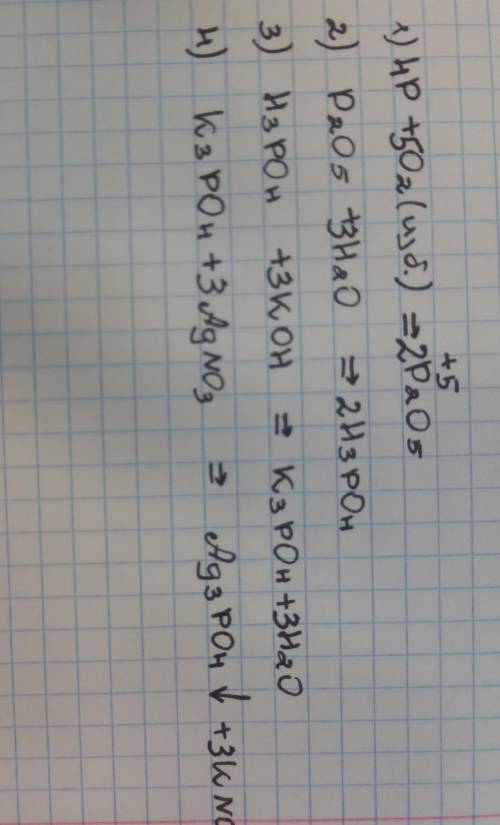 1) 4P + 5O₂ (изб.) ⇒ 2P₂⁺⁵O₅
2) P₂O₅ + 3H₂O ⇒ 2H₃PO₄
3) H₃PO₄ + 3KOH ⇒ K₃PO₄ + 3H₂O
4) K₃PO₄ + 3AgNO₃ ⇒ Ag₃PO₄↓ + 3KNO